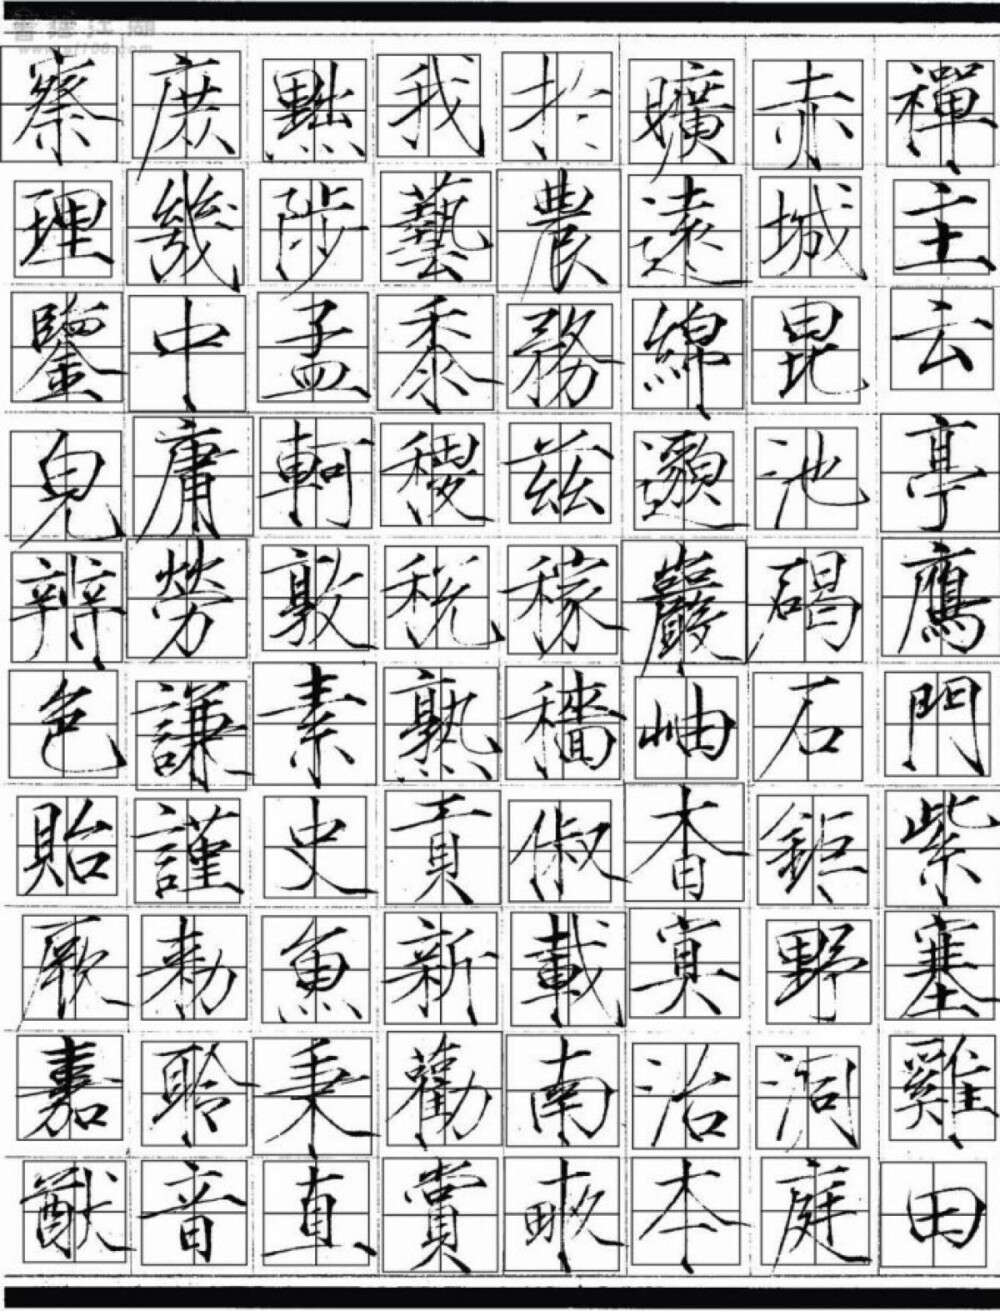 書法江湖
www.sf108.com
禪主云亭鷹門紫塞雞田
赤城昆池碣石鉅野洞庭
曠遠綿邈巖岫杳冥治本
於農務茲稼穡俶載南畝
我藝黍稷稅熟貢新勸賞
黜陟孟軻敦素史魚秉直
庶幾中庸勞謙謹勑聆音
察理鑒皃辨色貽厥嘉猷